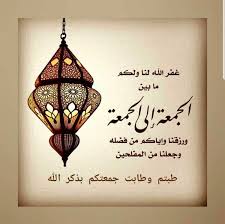 غفر الله لنا ولكم
ما بين
الجمعة إلى الجمعة
ورزقنا وإياكم من فضله
وجعلنا من المفلحين
طبتم وطابت جمعتكم بذكر الله